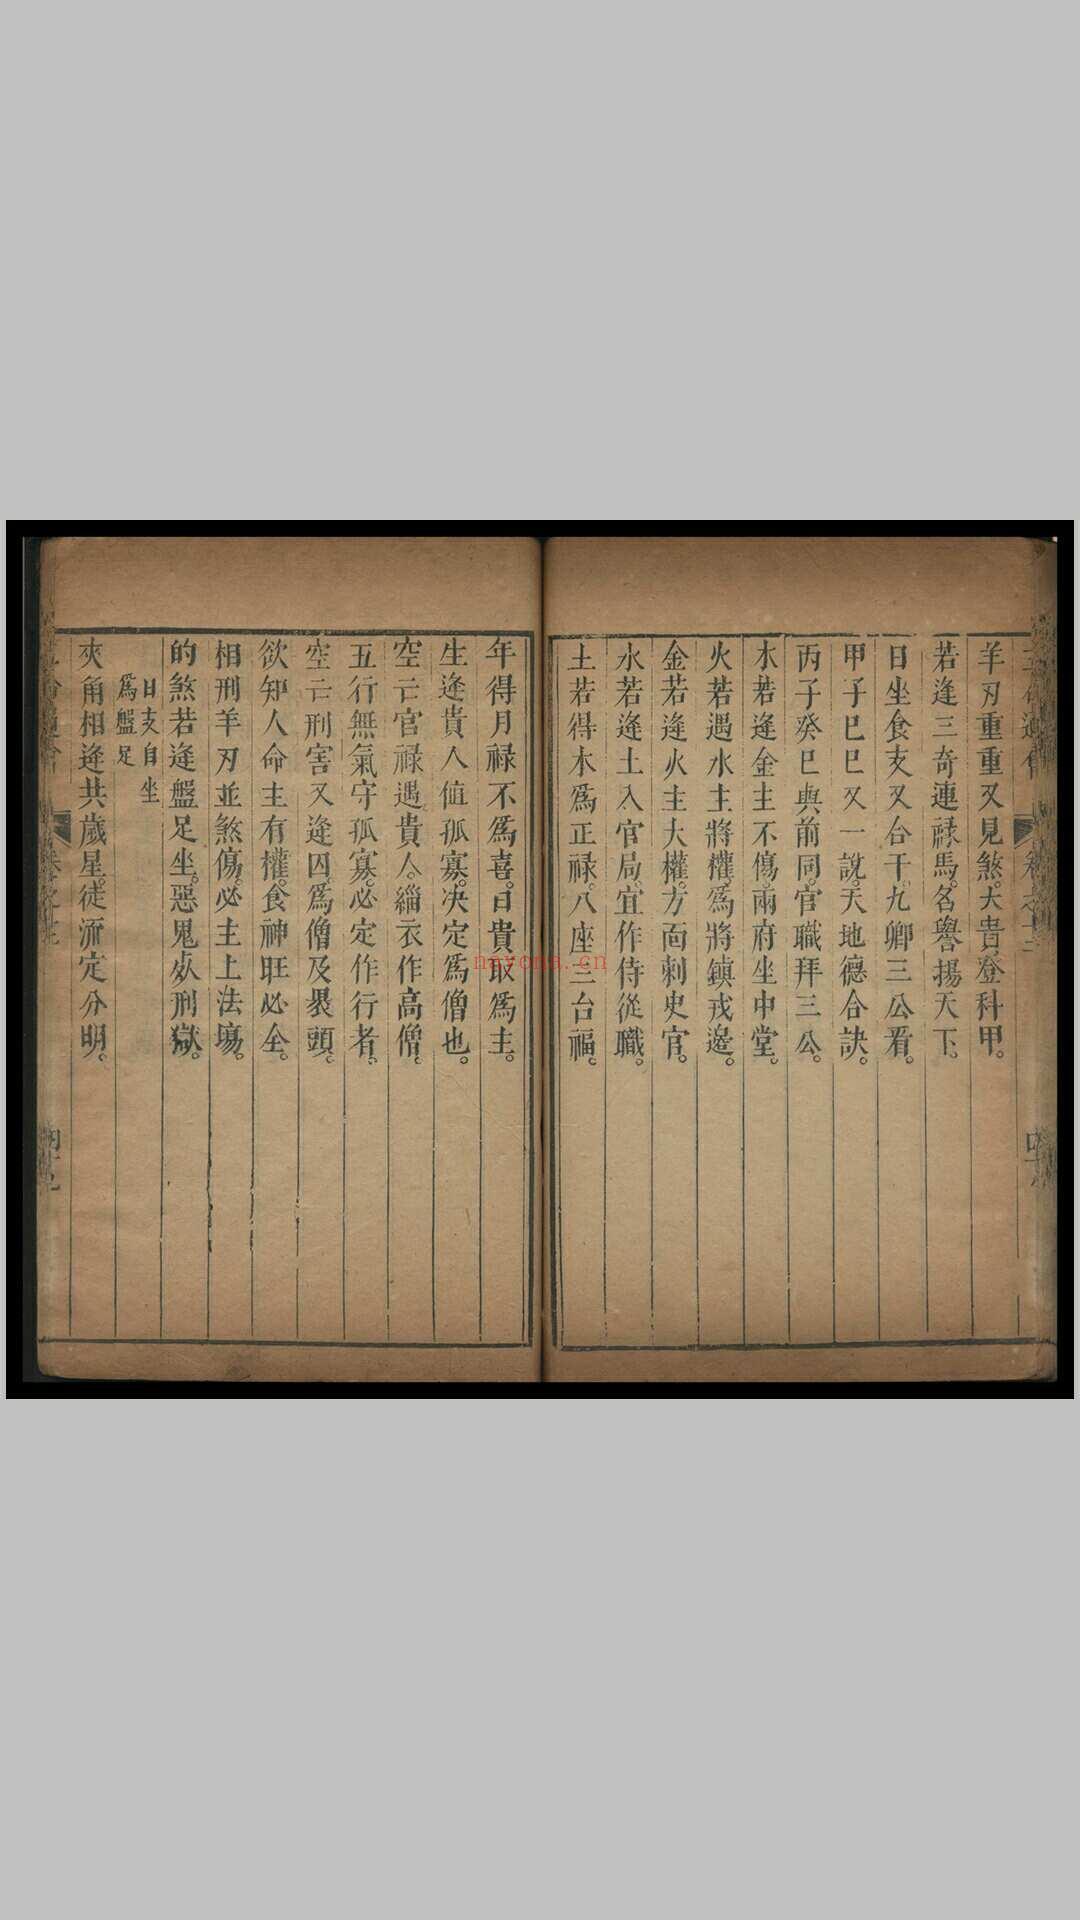 羊刃重重又見煞。大貴登科甲。
若逢三奇連禄馬。名譽揚天下。
日坐食支又合干。九卿三公看。
甲子巳巳又一說。天地德合訣。
丙子癸巳與前同。官職拜三公。
木若逢金主不傷。兩府坐中堂。
火若遇水主將權。爲將鎮戎邊。
金若逢火主大權。方面刺史官。
水若逢土入官局。宜作侍從職。
土若得木爲正禄。八座三台福。
年得月禄不爲喜。日貴取爲主。
生逢貴人值孤寡。决定爲僧也。
空亡官禄遇貴人。緇衣作高僧。
五行無氣守孤寡。必定作行者。
空亡刑害又逢囚。爲僧及裹頭。
欲知人命主有權。食神旺必全。
相刑羊刃並煞傷。必主上法場。
的煞若逢盤足坐。惡鬼㚒刑獄。
日支自坐
爲盤足
夾角相逢共歲星。徒流定分明。
nayona.cn